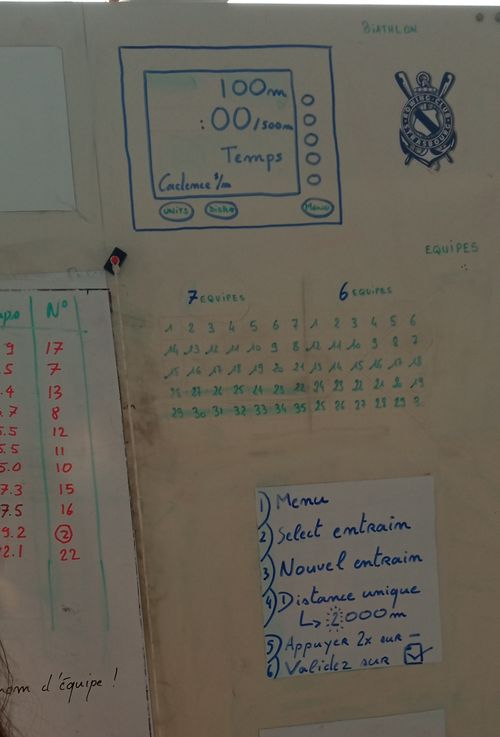 BIATHLON
100m
:00/500m
Temps
Cadence s/m
UNITS
Menu
ROWING CLUB
STRASBOURG
EQUIPES
7 EQUIPES
1 2 3 4 5 6 7
14 13 12 11 10 9 8
15 16 17 18 19 20 21
28 27 26 25 24 23 22
29 30 31 32 33 34 35
6 EQUIPES
1 2 3 4 5 6
12 11 10 9 8 7
13 14 15 16 17 18
24 23 22 21 20 19
25 26 27 28 29
N°
9 17
5 7
.4 13
.7 8
5.5 12
5.5 11
5.0 10
7.3 15
7.5 16
9.2 2
2.1 22
nom d'équipe !
1) Menu
2) Select entrain
3) Nouvel entrain
4) 1 Distance unique
↳ 2000m
5) Appuyer 2x sur -
6) Validez sur